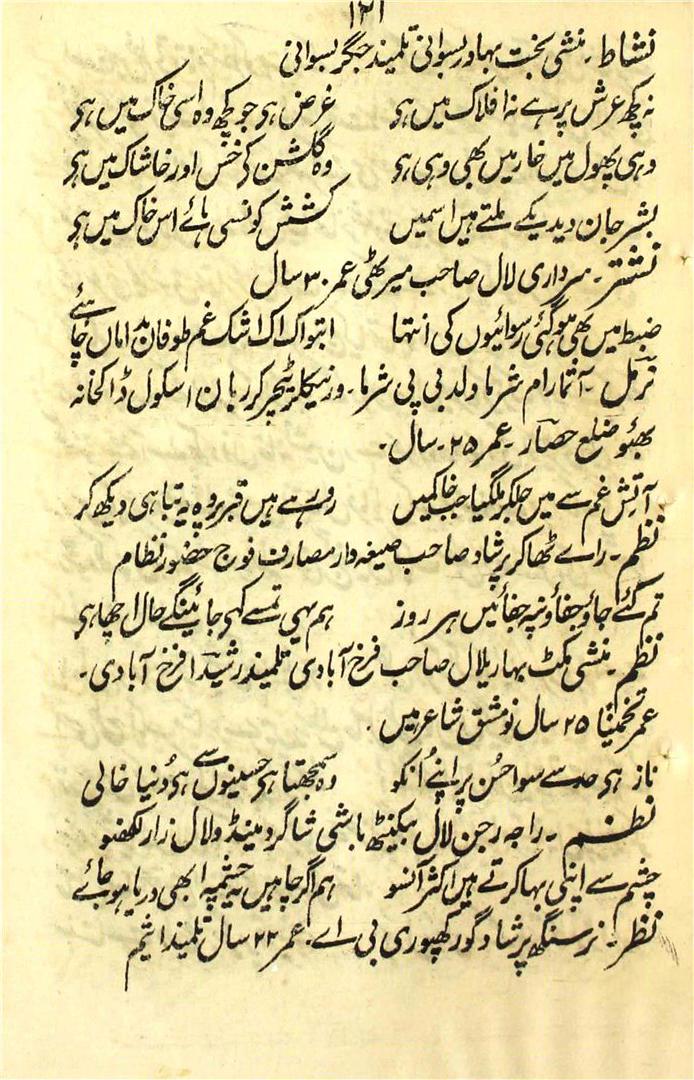 ۱۲۱
نشاط۔ منشی بخت بہادر بسوانی تلمیذ جگر بسوانی
نہ کچھ عرش پر ہے نہ افلاک میں ہی غرض ہی جو کچھ وہ اسی خاک میں ہی
وہی پھول میں خار میں بھی وہی ہی وہ گلشن کی خس اور خاشاک میں ہی
بشر جان دیدیکے ملتے ہیں اسمیں کشش کونسی ہائے اس خاک میں ہی
نشتر۔ سرداری لال صاحب میرٹھی عمر ۳۰ سال
ضبط میں بھی ہوگئی رسوائیوں کی انتہا ابتو اک اک اشک غم طوفان بداماں چاہئے
نرمل۔ آتمارام شرما ولد بی پی شرما۔ ورنیکلر ٹیچر اسکول ڈاکخانہ
بھٹو ضلع حصار۔ عمر ۲۵۔ سال۔
آتش غم سے میں جلکر ملگیا جب خاکمیں رو رہے ہیں قبر پر وہ یہ تباہی دیکھ کر
نظم۔ رائے ٹھاکر پرشاد صاحب صیغہ دار مصارف فوج حضور نظام
تم کئے جاؤ جفاؤنپہ جفائیں ہر روز ہم یہی تمسے کہی جائینگے حال اچھا ہی
نظم۔ منشی مکٹ بہاریلال صاحب فرخ آبادی تلمیذ رشیدا فرخ آبادی۔
عمر تخمیناً ۲۵ سال نومشق شاعر ہیں۔
ناز ہی حد سے سوا حُسن پر اپنے اُنکو وہ سمجھتا ہی حسینوں سے ہی دُنیا خالی
نظم۔ راجہ رجن لال بیکنٹھ باشی شاگرد مینڈولال زار لکھنو
چشم سے اپنی بہا کرتے ہیں اکثر آنسو ہم اگر چاہیں یہ چشمہ ابھی دریا ہو جائے
نظر۔ نرسنگھ پرشاد گورکھپوری بی اے۔ عمر ۲۲ سال تلمیذ